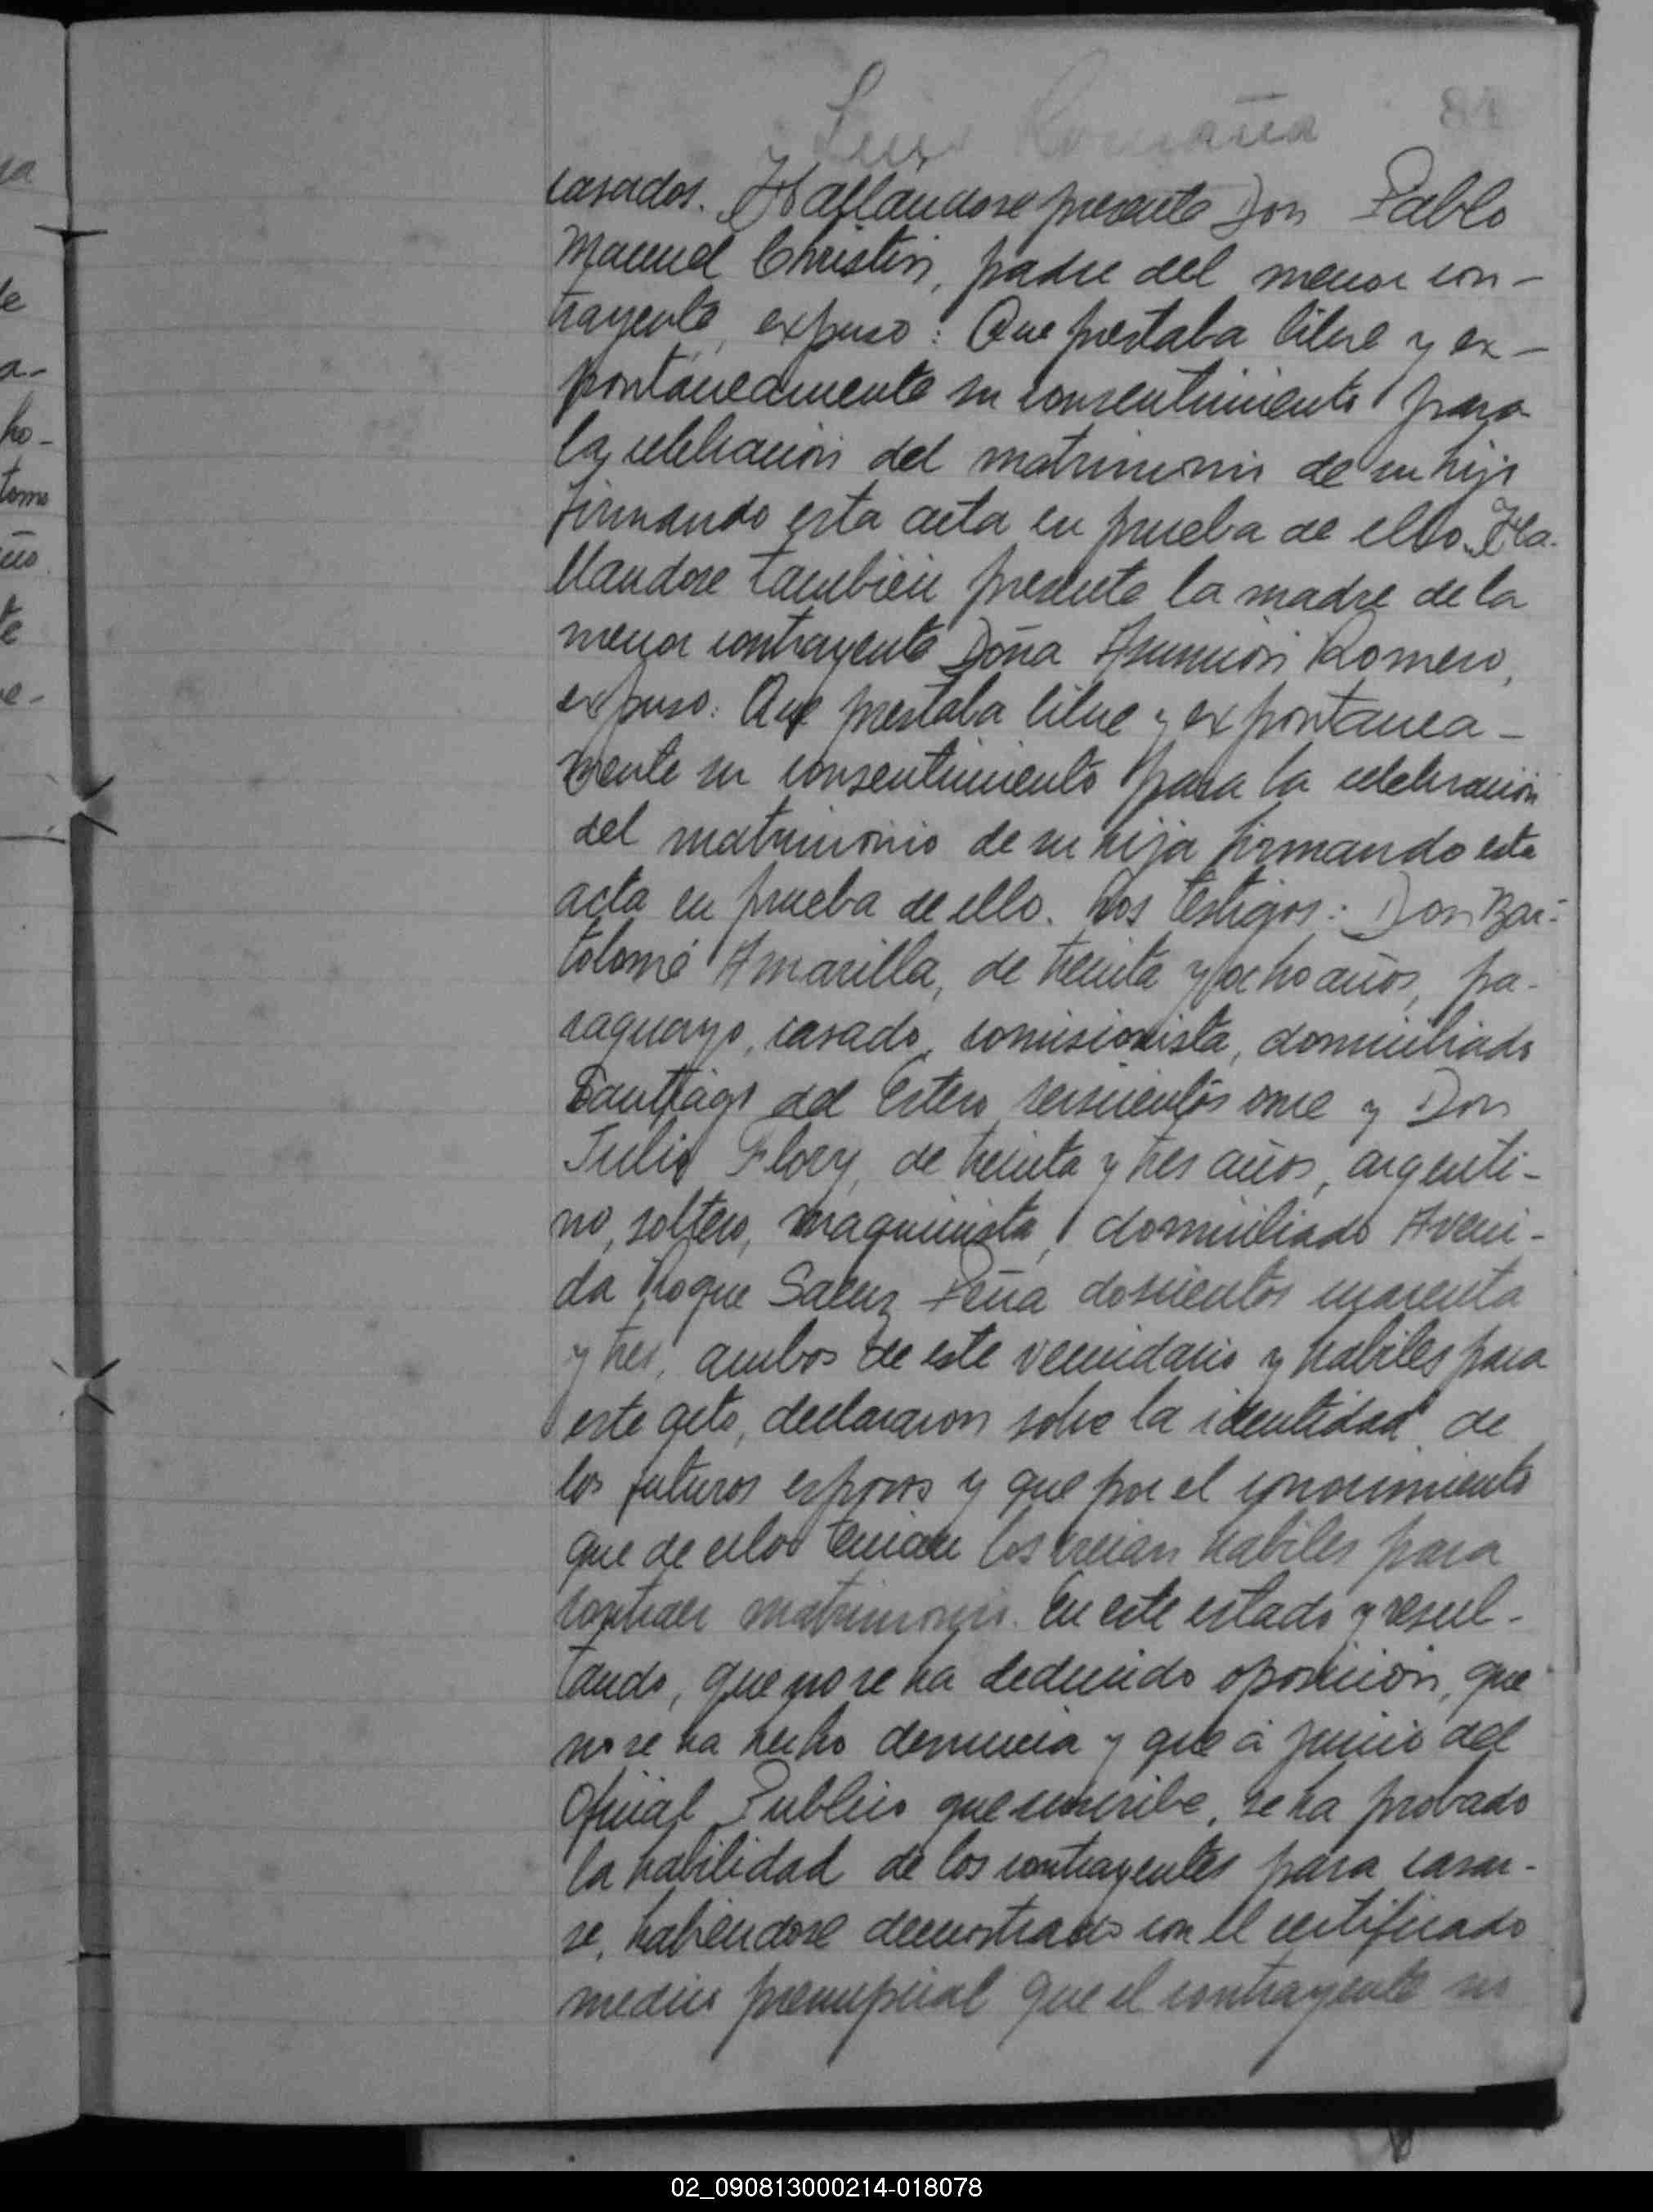 84
casados. Hallandose presente Don Pablo
Manuel Christin, padre del menor con-
trayente, expuso: Que prestaba libre y ex-
pontaneamente su consentimiento para
la celebración del matrimonio de su hijo
firmando esta acta en prueba de ello. Ha-
llandose tambien presente la madre de la
menor contrayente Doña Asunción Romero,
expuso: Que prestaba libre y expontanea-
mente su consentimiento para la celebración
del matrimonio de su hija firmando esta
acta en prueba de ello. Los testigos: Don Bar-
tolomé Amarilla, de treinta y ocho años, pa-
raguayo, casado, comisionista, domiciliado
Santiago del Estero seiscientos once y Don
Julio Flory, de treinta y tres años, argenti-
no, soltero, maquinista, domiciliado Aveni-
da Roque Saenz Peña doscientos cuarenta
y tres, ambos de este vecindario y habiles para
este acto, declararon sobre la identidad de
los futuros esposos y que por el conocimiento
que de ellos tenian los creian habiles para
contraer matrimonio. En este estado y resul-
tando, que no se ha deducido oposición, que
no se ha hecho denuncia y que á juicio del
Oficial Publico que suscribe, se ha probado
la habilidad de los contrayentes para casar-
se, habiendose demostrado con el certificado
medico prenupcial que el contrayente no
02_090813000214-018078